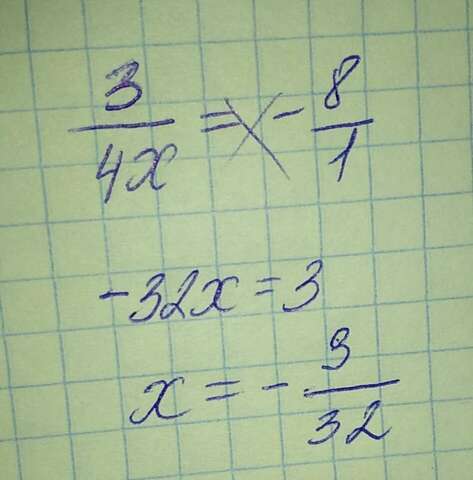 3/4x = - 8/1
-32x = 3
x = - 3/32